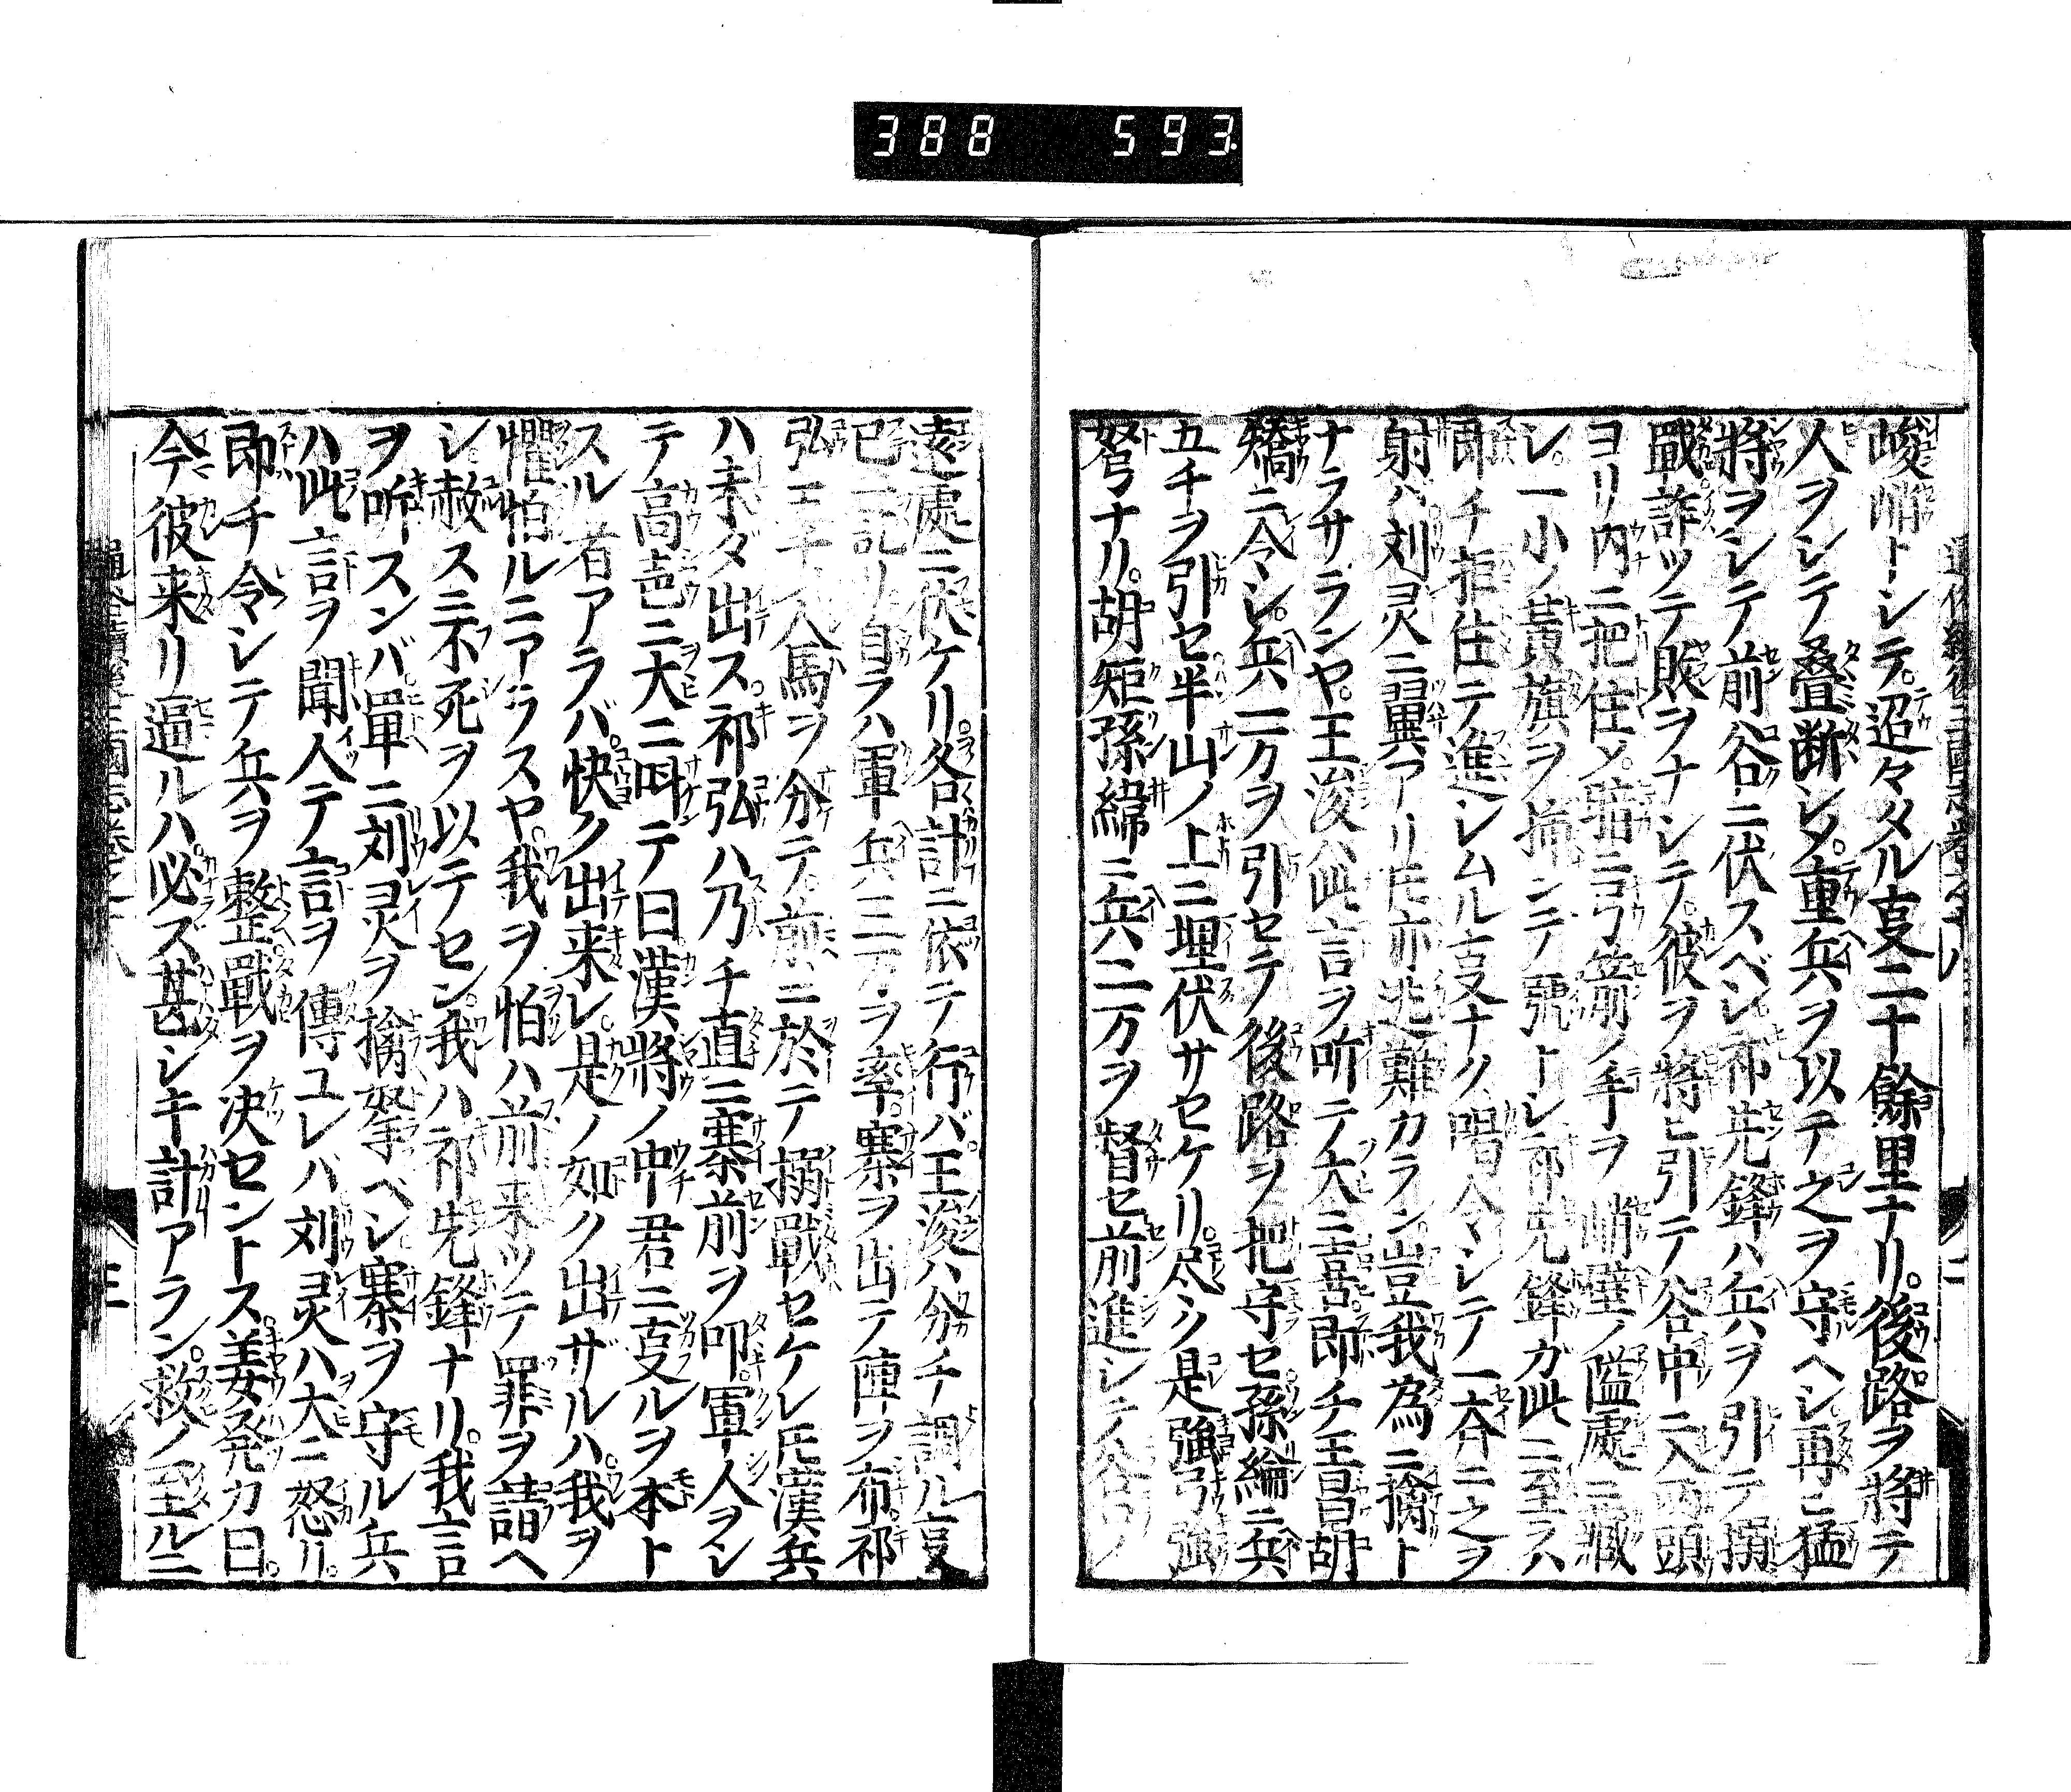 388 593
峻峭トシテ。迢々タル㕝二十餘里ナリ。後路ヲ將テ
人ヲシテ叠断シメ。重兵ヲ以テ之ヲ守ヘシ。再ヒ猛
將ヲシテ前谷ニ伏スベシ祁先鋒ハ兵ヲ引テ搦
戰詐ツテ敗ヲナシテ。彼ヲ將ヒ引テ谷中ニ入両頭
ヨリ内ニ把住メ。暗ニ弓箭ノ手ヲ峭壁ノ隘處ニ藏
シ。一小ノ黃旗ヲ揷ンテ號トシ祁先鋒カ此ニ至ラハ
即チ拒住テ進シムル㕝ナク。陽令シテ一斉ニ之ヲ
射ハ刘灵ニ翼アリ𪜈亦逃難カラン。豈我為ニ擒ト
ナラサランヤ。王浚ハ此言ヲ听テ大ニ喜即チ王昌胡
矯ニ令シ。兵一万ヲ引セテ後路ヲ把守セ孫綸ニ兵
五千ヲ引セ半山ノ上ニ埋伏サセケリ。尽ク是強弓強
弩ナリ。胡矩孫緯ニ兵二万ヲ督セ前進シテ谷口ノ
遠處ニ伏ケリ。各計ニ依テ行バ。王浚ハ分チ調ル㕝
已ニ訖リ自ラハ軍兵三万ヲ率。寨ヲ出テ陣ヲ布。祁
弘王甲人馬ヲ分テ。前ニ於テ搦戰セケレ𪜈漢兵
ハ未ダ出ス。祁弘ハ乃チ直ニ寨前ヲ叩。軍人ヲシ
テ高邑ニ大ニ呌テ曰漢將ノ中君ニ㕝ルヲ本ト
スル者アラバ。快ク出来レ。是ノ如ク出ザルハ我ヲ
懼怕ルニアラスヤ。我ヲ怕ハ前来ツテ罪ヲ請ヘ
シ。赦スニ不死ヲ以テセン。我ハ祁先鋒ナリ。我言
ヲ听スンバ。單ニ刘灵ヲ擒拏ベシ寨ヲ守ル兵
ハ此言ヲ聞人テ言ヲ傳ユレバ刘灵ハ大ニ怒リ。
即チ令シテ兵ヲ整。戰ヲ决セントス。姜発カ曰。
今彼来リ逼ルハ。必ス甚シキ計アラン。救ノ至ルニ